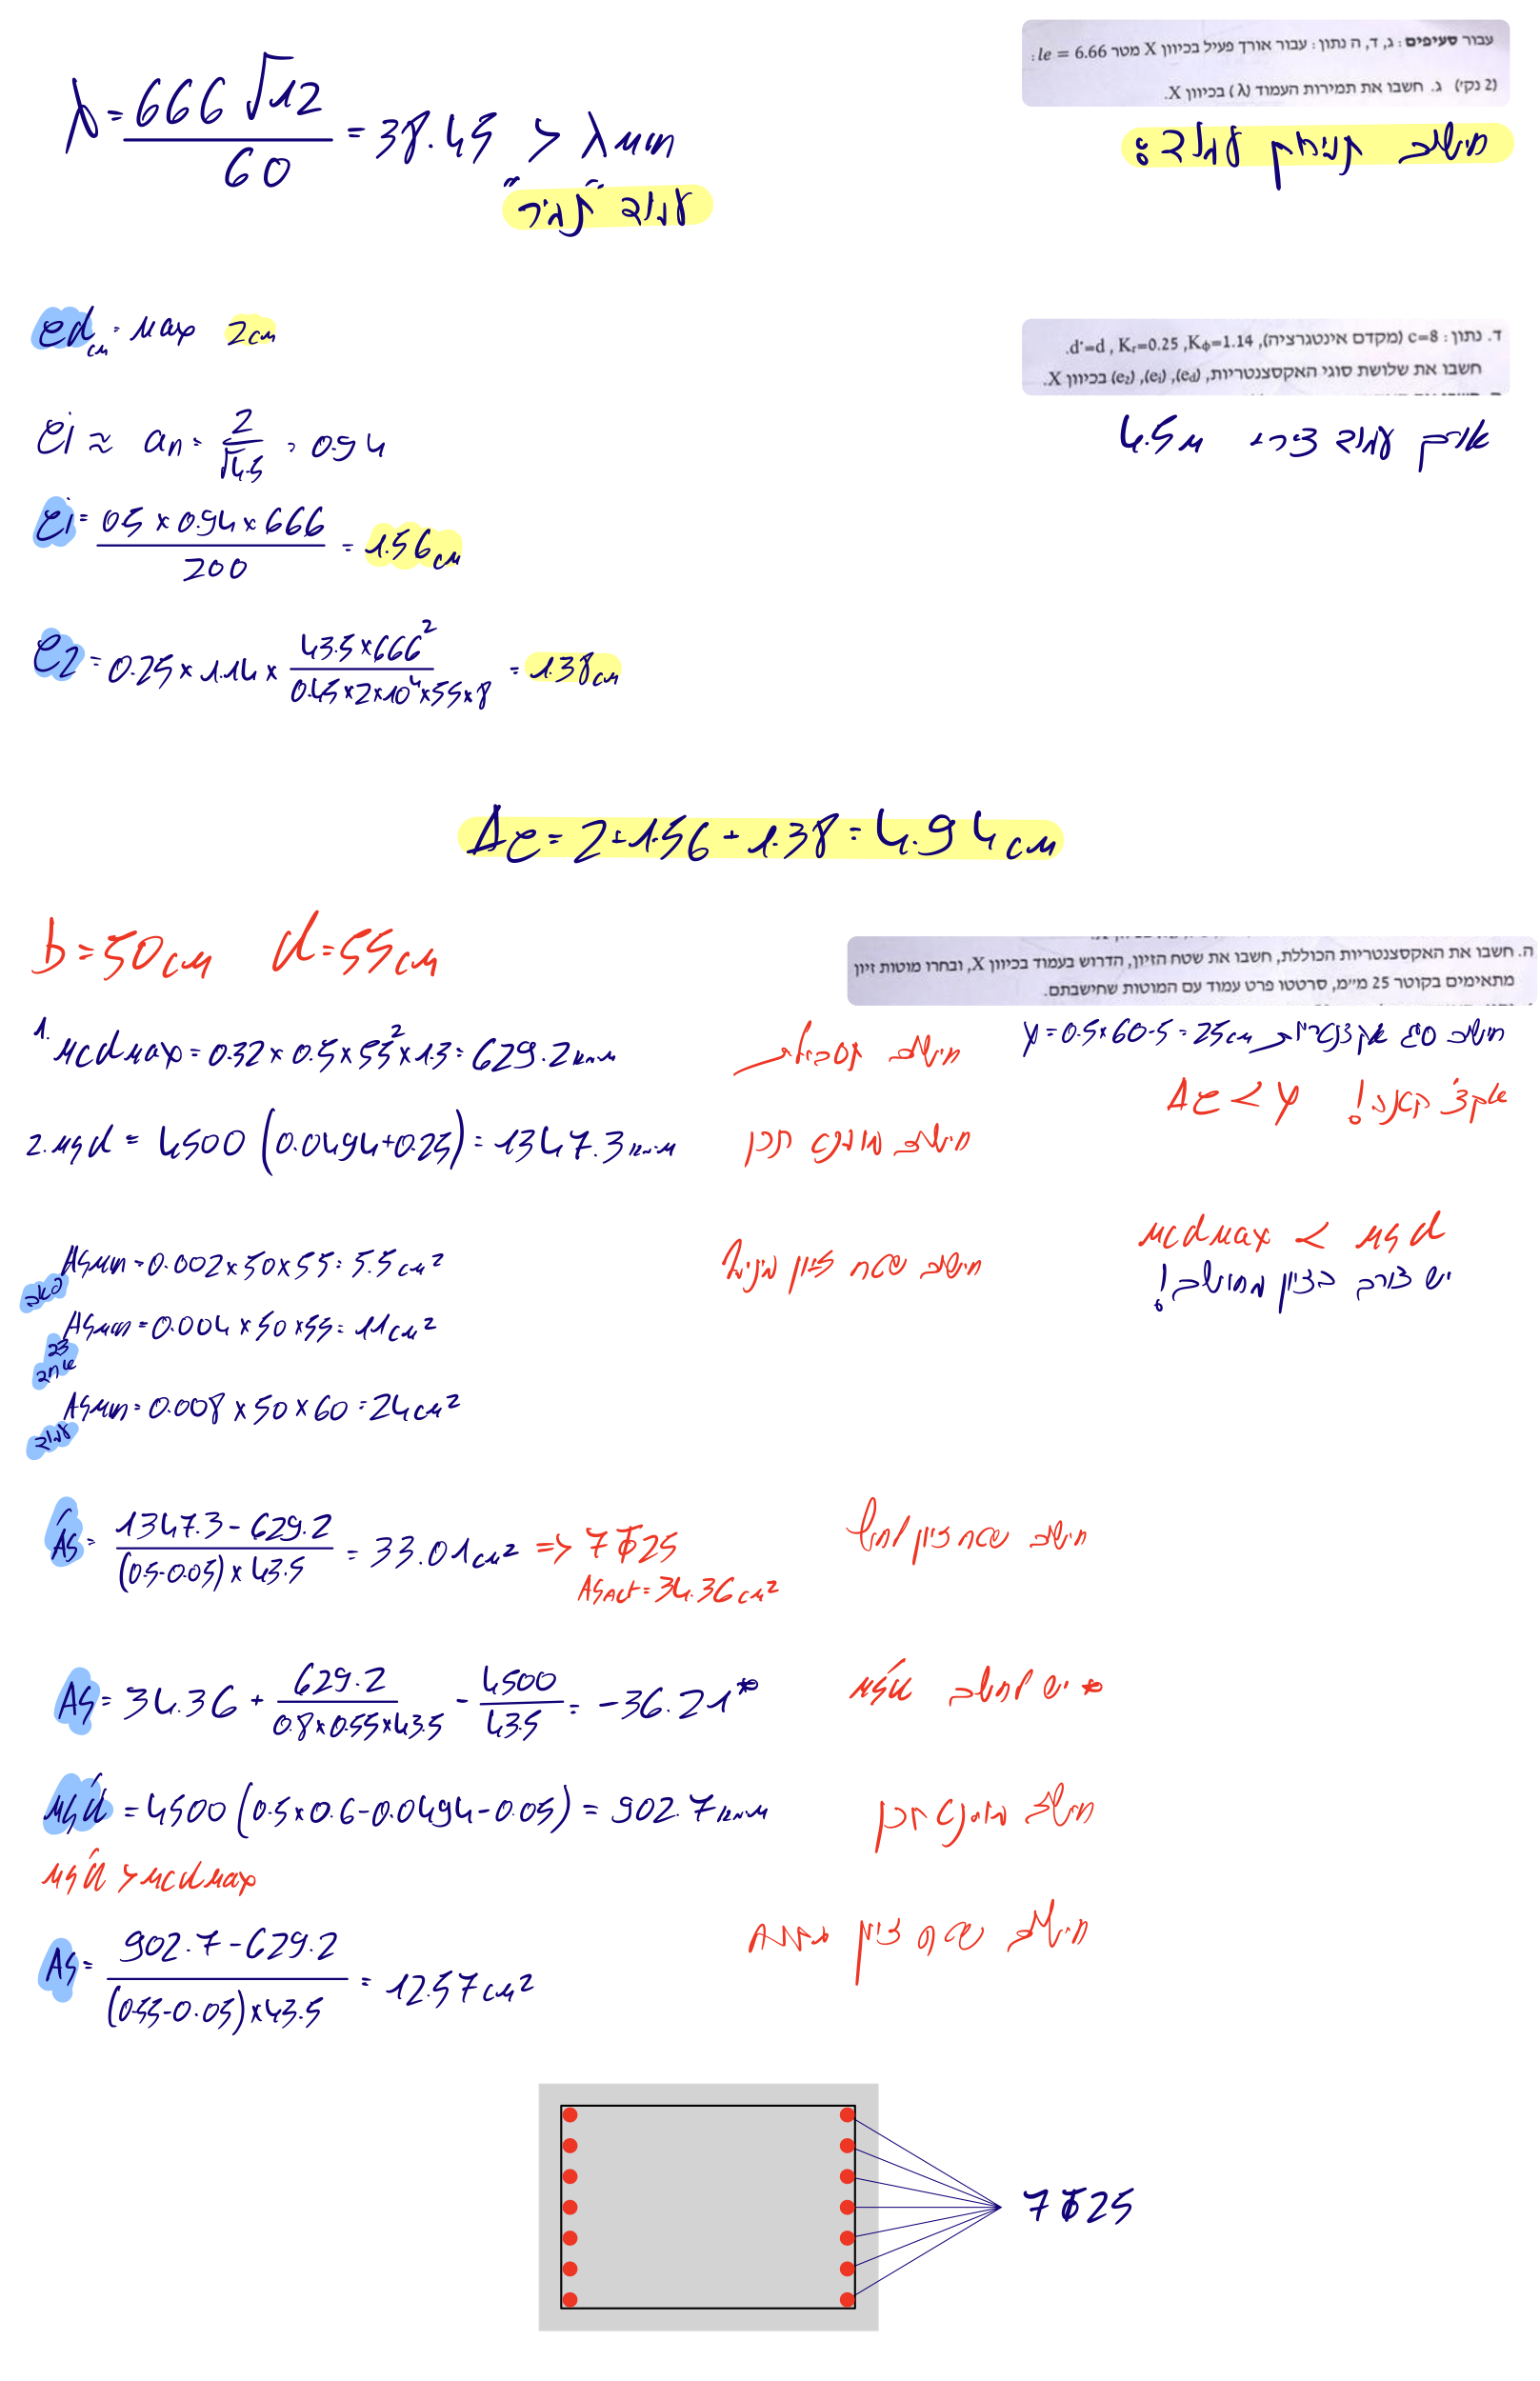 עבור סעיפים: ג, ד, ה נתון: עבור אורך פעיל בכיוון X מטר le = 6.66:
(2 נקי) ג. חשבו את תמירות העמוד (λ) בכיוון X.
חישוב תמירות עמוד:
λ = 666√12 / 60 = 38.45 > λmin
עמוד "תמיר"
ed cm = max 2cm
ד. נתון: c=8 (מקדם אינטגרציה), Kφ=1.14, Kr=0.25, d'=d.
חשבו את שלושת סוגי האקסצנטריות, (ed), (ei), (e2) בכיוון X.
אורך עמוד צירי 4.5m
ei ≈ an = 2/√4.5 = 0.94
ei = 0.5 × 0.94 × 666 / 200 = 1.56cm
e2 = 0.25 × 1.14 × 43.5 × 666² / 0.45 × 2 × 10⁴ × 55 × 8 = 1.38cm
Δe = 2 + 1.56 + 1.38 = 4.94cm
b = 50cm d = 55cm
ה. חשבו את האקסצנטריות הכוללת, חשבו את שטח הזיון, הדרוש בעמוד בכיוון X, ובחרו מוטות זיון
מתאימים בקוטר 25 מ״מ, סרטטו פרט עמוד עם המוטות שחישבתם.
חישוב סוג אקצנטריות y = 0.5×60-5 = 25cm
אקצ' קטנה! Δe < y
1. Mcdmax = 0.32 × 0.5 × 55² × 1.3 = 629.2kn·m
חישוב תסבולת
2. Msd = 4500 (0.0494+0.25) = 1347.3kn·m
חישוב מומנט תכן
Mcdmax < Msd
יש צורך בזיון מחושב!
Asmin = 0.002 × 50 × 55 = 5.5cm²
חישוב שטח זיון מינימלי
Asmin = 0.004 × 50 × 55 = 11cm²
Asmin = 0.008 × 50 × 60 = 24cm²
עמוד
A's = 1347.3 - 629.2 / (0.5-0.05) × 43.5 = 33.01cm² => 7Φ25
Asact = 34.36cm²
חישוב שטח זיון לחוץ
As = 34.36 + 629.2 / 0.8×0.55×43.5 - 4500 / 43.5 = -36.21*
* יש לחשב M'sd
M'sd = 4500 (0.5×0.6-0.0494-0.05) = 902.7kn·m
חישוב מומנט תכן
M'sd > Mcdmax
As = 902.7 - 629.2 / (0.55-0.05)×43.5 = 12.57cm²
חישוב שטח זיון
7Φ25